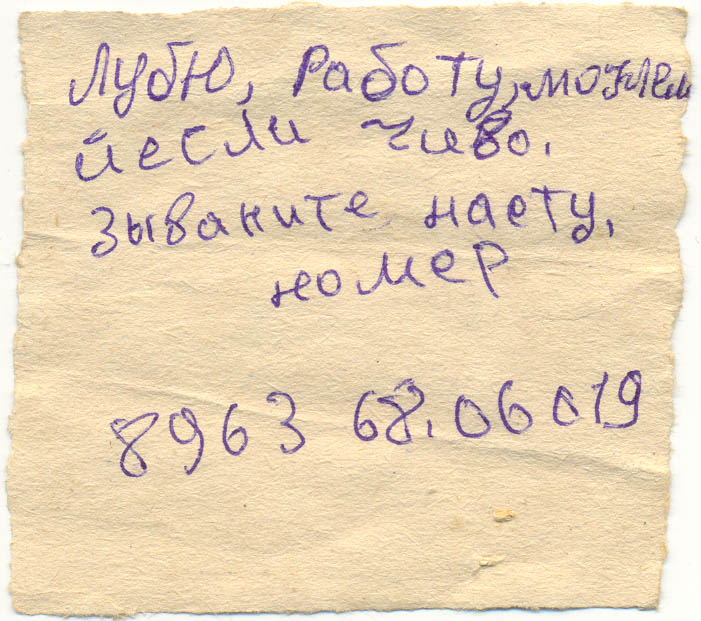 Лубю, Работу,можем
йесли чиво.
зываните наету,
номер
8963 68.06019